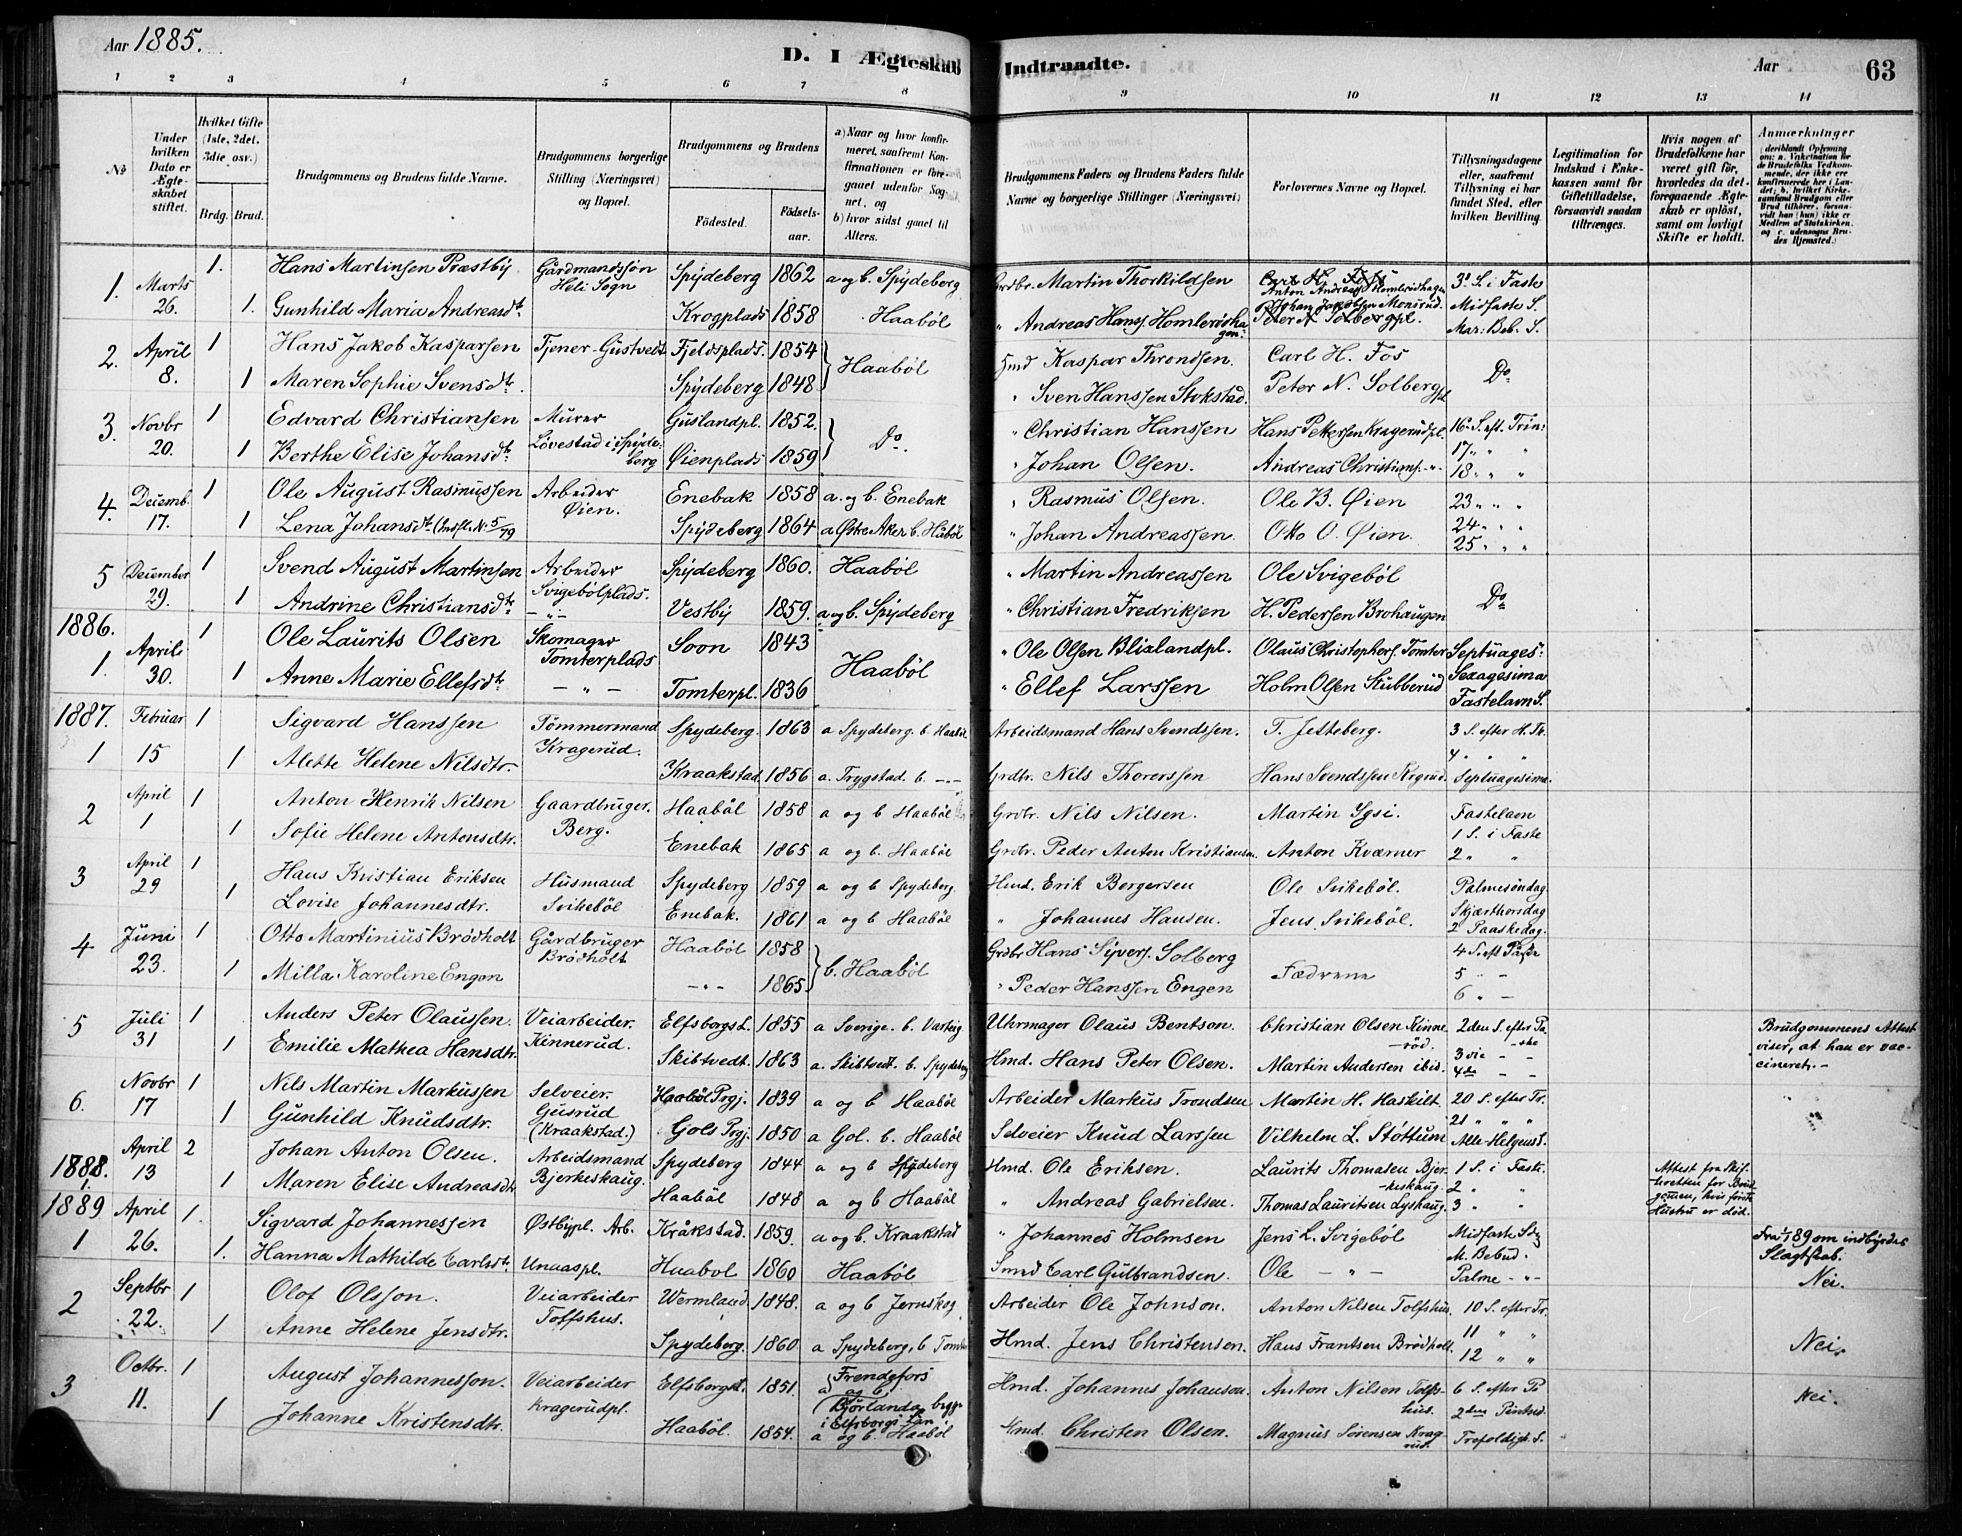 Aar 1885.
D. I Ægteskab Indtraadte.
Aar
63
1 2 3 4 5 6 7 8 9 10 11 12 13 14
No
Under hvilken Dato er Ægteskabet stiftet.
Hvilket Gifte (1ste, 2det, 3die osv.)
Brdg. Brud.
Brudgommens og Brudens fulde Navne.
Brudgommens borgerlige Stilling (Næringsvei) og Bopæl.
Brudgommens og Brudens
Födested. Födselsaar.
a) Naar og hvor konfirmeret, saafremt Konfirmationen er foregaaet udenfor Sognet, og
b) hvor sidst gaaet til Alters.
Brudgommens Faders og Brudens Faders fulde Navne og borgerlige Stillinger (Næringsvei)
Forlovernes Navne og Bopæl.
Tillysningsdagene eller, saafremt Tillysning ei har fundet Sted, efter hvilken Bevilling.
Legitimation for Indskud i Enkekassen samt for Giftetilladelse, forsaavidt saadan tiltrænges.
Hvis nogen af Brudefolkene har været gift för, hvorledes da det foregaaende Ægteskab er oplöst, samt om lovligt Skifte er holdt.
Anmærkninger
1. Marts 26. 1. Hans Martinsen Præstby Gårdmandssøn Heli Sogn Spydeberg 1862 a og b. Spydeberg Grdbr. Martin Thorkildsen Anton Andreas Homlerødhagen 3' S. i Faste
1. Gunhild Maria Andreasdt. Krogplads 1858 Haabøl " Andreas Hans. Homlerødhagen. Johan Jakobsen Monsrud. Midfaste S. Mar. Beb. S.
2. April 8. 1 Hans Jakob Kasparsen Tjener Gustvedt Fjeldsplads. 1854 Haabøl Hmd Kaspar Throndsen. Carl H. Fos Do
1 Maren Sophie Svensdt. Spydeberg 1848 " Sven Hanssen Stokstad. Peter N. Solbergpl.
3. Novbr 20. 1 Edvard Christiansen Murer Løvestad i Spydeberg Guslandpl. 1852. Do. " Christian Hanssen Hans Pettersen Kragerudpl. 16. S. eft. Trin:
1 Berthe Elise Johansdt. Øienplads 1859 " Johan Olsen. Andreas Christians. - " - 17 " " 18 " "
4. Decemb. 17. 1 Ole August Rasmussen Arbeider Øien. Enebak 1858 a. og b. Enebak " Rasmus Olsen. Ole B. Øien 23 " "
1 Lena Johansdt. (Indfl. N. 5/79 Spydeberg 1864 a Østre Aker b. Håbøl " Johan Andreassen. Otto O. Øien. 24 " " 25 " "
5 December 29. 1 Svend August Martinsen Arbeider Svigebølplads. Spydeberg 1860. Haabøl " Martin Andreassen Ole Svigebøl Do
1 Andrine Christiansdt. - " - Vestby 1859. a og b. Spydeberg " Christian Fredriksen H. Pedersen Brohaugen
1886.
1. April 30. 1 Ole Laurits Olsen Skomager Tomterplads Soon 1843 Haabøl " Ole Olsen Blixlandpl. Olaus Christophers. Tomter Septuages:
1 Anne Marie Ellefsdt. - " - Tomterpl. 1836 " Ellef Larssen Holm Olsen Stubberud Sexagesima Fastelavn S.
1887.
1 Februar 15 1 Sigvard Hanssen Tømmermand Kragerud. Spydeberg. 1863 a Spydeberg. b. Haabøl Arbeidsmand Hans Svendssen. T. Jetteberg. 3 S. efter H. Tr. 4 " "
1 Alette Helene Nilsdtr. Kraakstad 1856 a. Trygstad. b. - " - Grdbr. Nils Thorerssen Hans Svendssen Septuagesima.
2 April 1 1 Anton Henrik Nilsen Gaardbruger. Berg. Haabøl 1858 a og b Haabøl Grdbr. Nils Nilsen. Martin Ygsi. Fastelavn
1 Sofie Helene Antonsdtr. Enebak 1865 a og b. Haabøl Grdbr. Peder Anton Kristiansen Anton Kværner 1 S. i Faste 2 " "
3 April 29 1 Hans Kristian Eriksen Husmand Svikebøl Spydeberg 1859 a og b Spydeberg. Hmd. Erik Bergersen Ole Svikebøl. Palmesøndag
1 Lovise Johannesdtr. Enebak. 1861 a og b Haabøl " Johannes Hansen. Jens Svikebøl. Skjærthorsdag 2 Paaskedag.
4 Juni 23. 1 Otto Martinius Brødholt Gårdbruger Brødholt Haabøl 1858 b. Haabøl Grdbr Hans Syvers. Solberg Fædrene 4 S. eft Påske
1 Milla Karoline Engen - " - 1865 " Peder Hanssen Engen 5 " - 6 " -
5 Juli 31 1 Anders Peter Olaussen. Veiarbeider. Kinnerud. Elfsborgs L. 1855 a Sverige. b. Varteig Uhrmager Olaus Bentson. Christian Olsen Kinnerød. 2den S. efter Paaske Brudgommens Attest viser, at han er vaccineret. -
1 Emilie Mathea Hansdtr. Skibtvedt. 1863 a. Skibtvedt. b. Spydeberg Hmd. Hans Peter Olsen. Martin Andersen ibid. 3die - - 4de - -
6. Novbr 17 1 Nils Martin Markussen Selveier. Gusrud (Kraakstad.) Haabøl Prgj. 1839 a og b Haabøl Arbeider Markus Trondsen Martin H. Haskilt. 20 S. efter Tr.
1 Gunhild Knudsdtr. Gols Prgj. 1850 a Gol. b. Haabøl Selveier Knud Larssen Vilhelm L. Støttum 21 " " Alle-Helgens S.
1888.
1. April 13 2 Johan Anton Olsen. Arbeidsmand Bjerkeskaug. Spydeberg 1844 a og b Spydeberg Hmd. Ole Eriksen. Laurits Thomasen Bjerkeskaug 1 S. i Faste. 2 " " Attest fra Skifteretten for Brudgomen, hvis første Hustru er död.
1 Maren Elise Andreasdtr Haabøl 1848 a og b Haabøl " Andreas Gabrielsen. Thomas Lauritsen Lyshaug. 3 " "
1889
1 April 26. 1. Sigvard Johannessen Østbypl. Arb. Kråkstad. 1859. a og b. Kraakstad " Johannes Holmsen Jens L. Svigebøl Midfaste Sdg Fra 1/1 89 om indbyrdes Slagtskab.
1. Hanna Mathilde Carlsdt. Unaaspl. Haabøl 1860 Haabøl Smed Carl Gulbrandsen. Ole - " - M. Bebud. - Palme - " - Nei.
2 Septbr 22. 1 Olof Olsson. Veiarbeider Toffshus. Wermland. 1848. a og b Jernskog Arbeider Ole Johnson. Anton Nilsen Tolfshus. 10 S. efter Tr.
1 Anne Helene Jensdtr. Spydeberg. 1860. a Spydeberg, b Tomter Hmd. Jens Christensen. Hans Frantsen Brødholt. 11 " " 12 " " Nei.
3 Octbr. 11. 1 August Johannesson. Veiarbeider Kragerudpl. Elfsborgsl. 1851. a Frendefors og b. Bjørlanda begge i Elfsborgs Län. Hmd. Johannes Johanson. Anton Nilsen Tolfshus. 6 S. efter P 2den Pintsd. Nei.
1 Johanne Kristensdtr. Haabøl. 1854. a og b. Haabøl Hmd. Christen Olsen. Magnus Sørensen Kragrud. Trefoldigh. S.